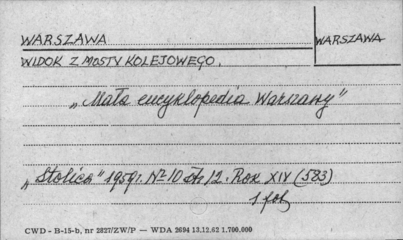 WARSZAWA
WARSZAWA
WIDOK Z MOSTU KOLEJOWEGO.
„Mała encyklopedia Warszawy”
„Stolica” 1959r. Nr 10 str. 12. Rok XIV (583)
1 fot
CWD - B-15-b, nr 2827/ZW/P — WDA 2694 13.12.62 1.700.000